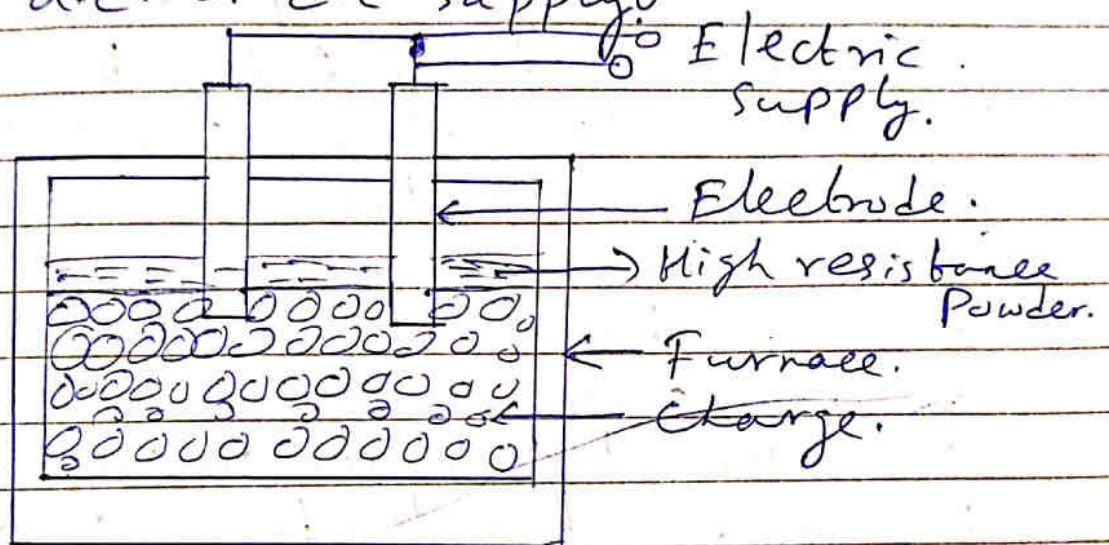 supply.
Electric.
supply.
Electrode.
High resistance
Powder.
Furnace.
Charge.